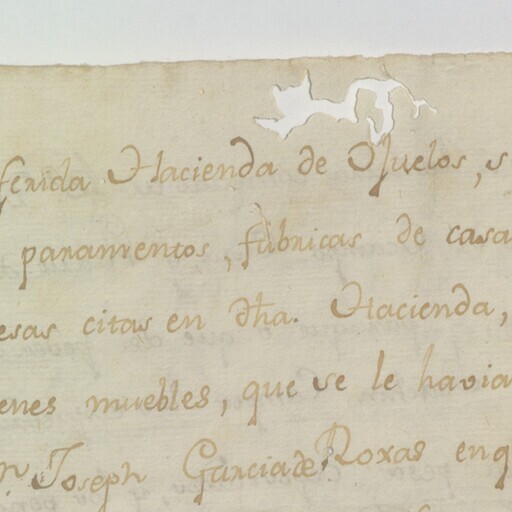 ferida Hacienda de Ojuelos, s
paramentos, fabricas de casa
esas citas en dha. Hacienda,
enes muebles, que se le havia
Joseph Garcia de Roxas enq